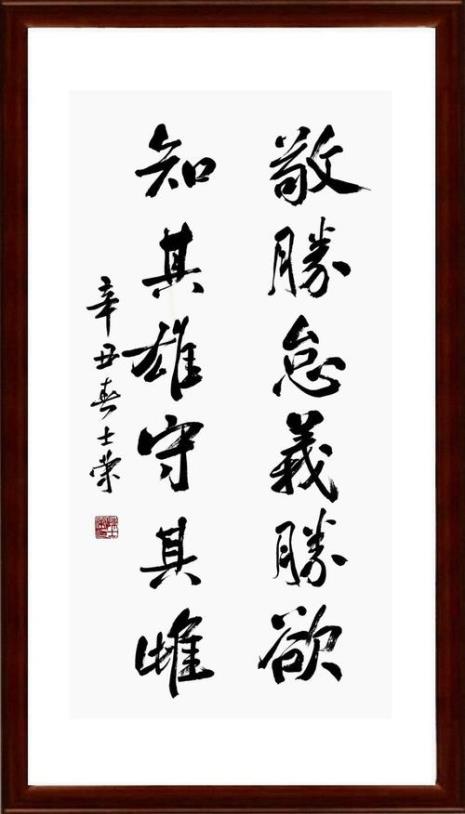 敬勝怠義勝欲
知其雄守其雌
辛丑春士荣